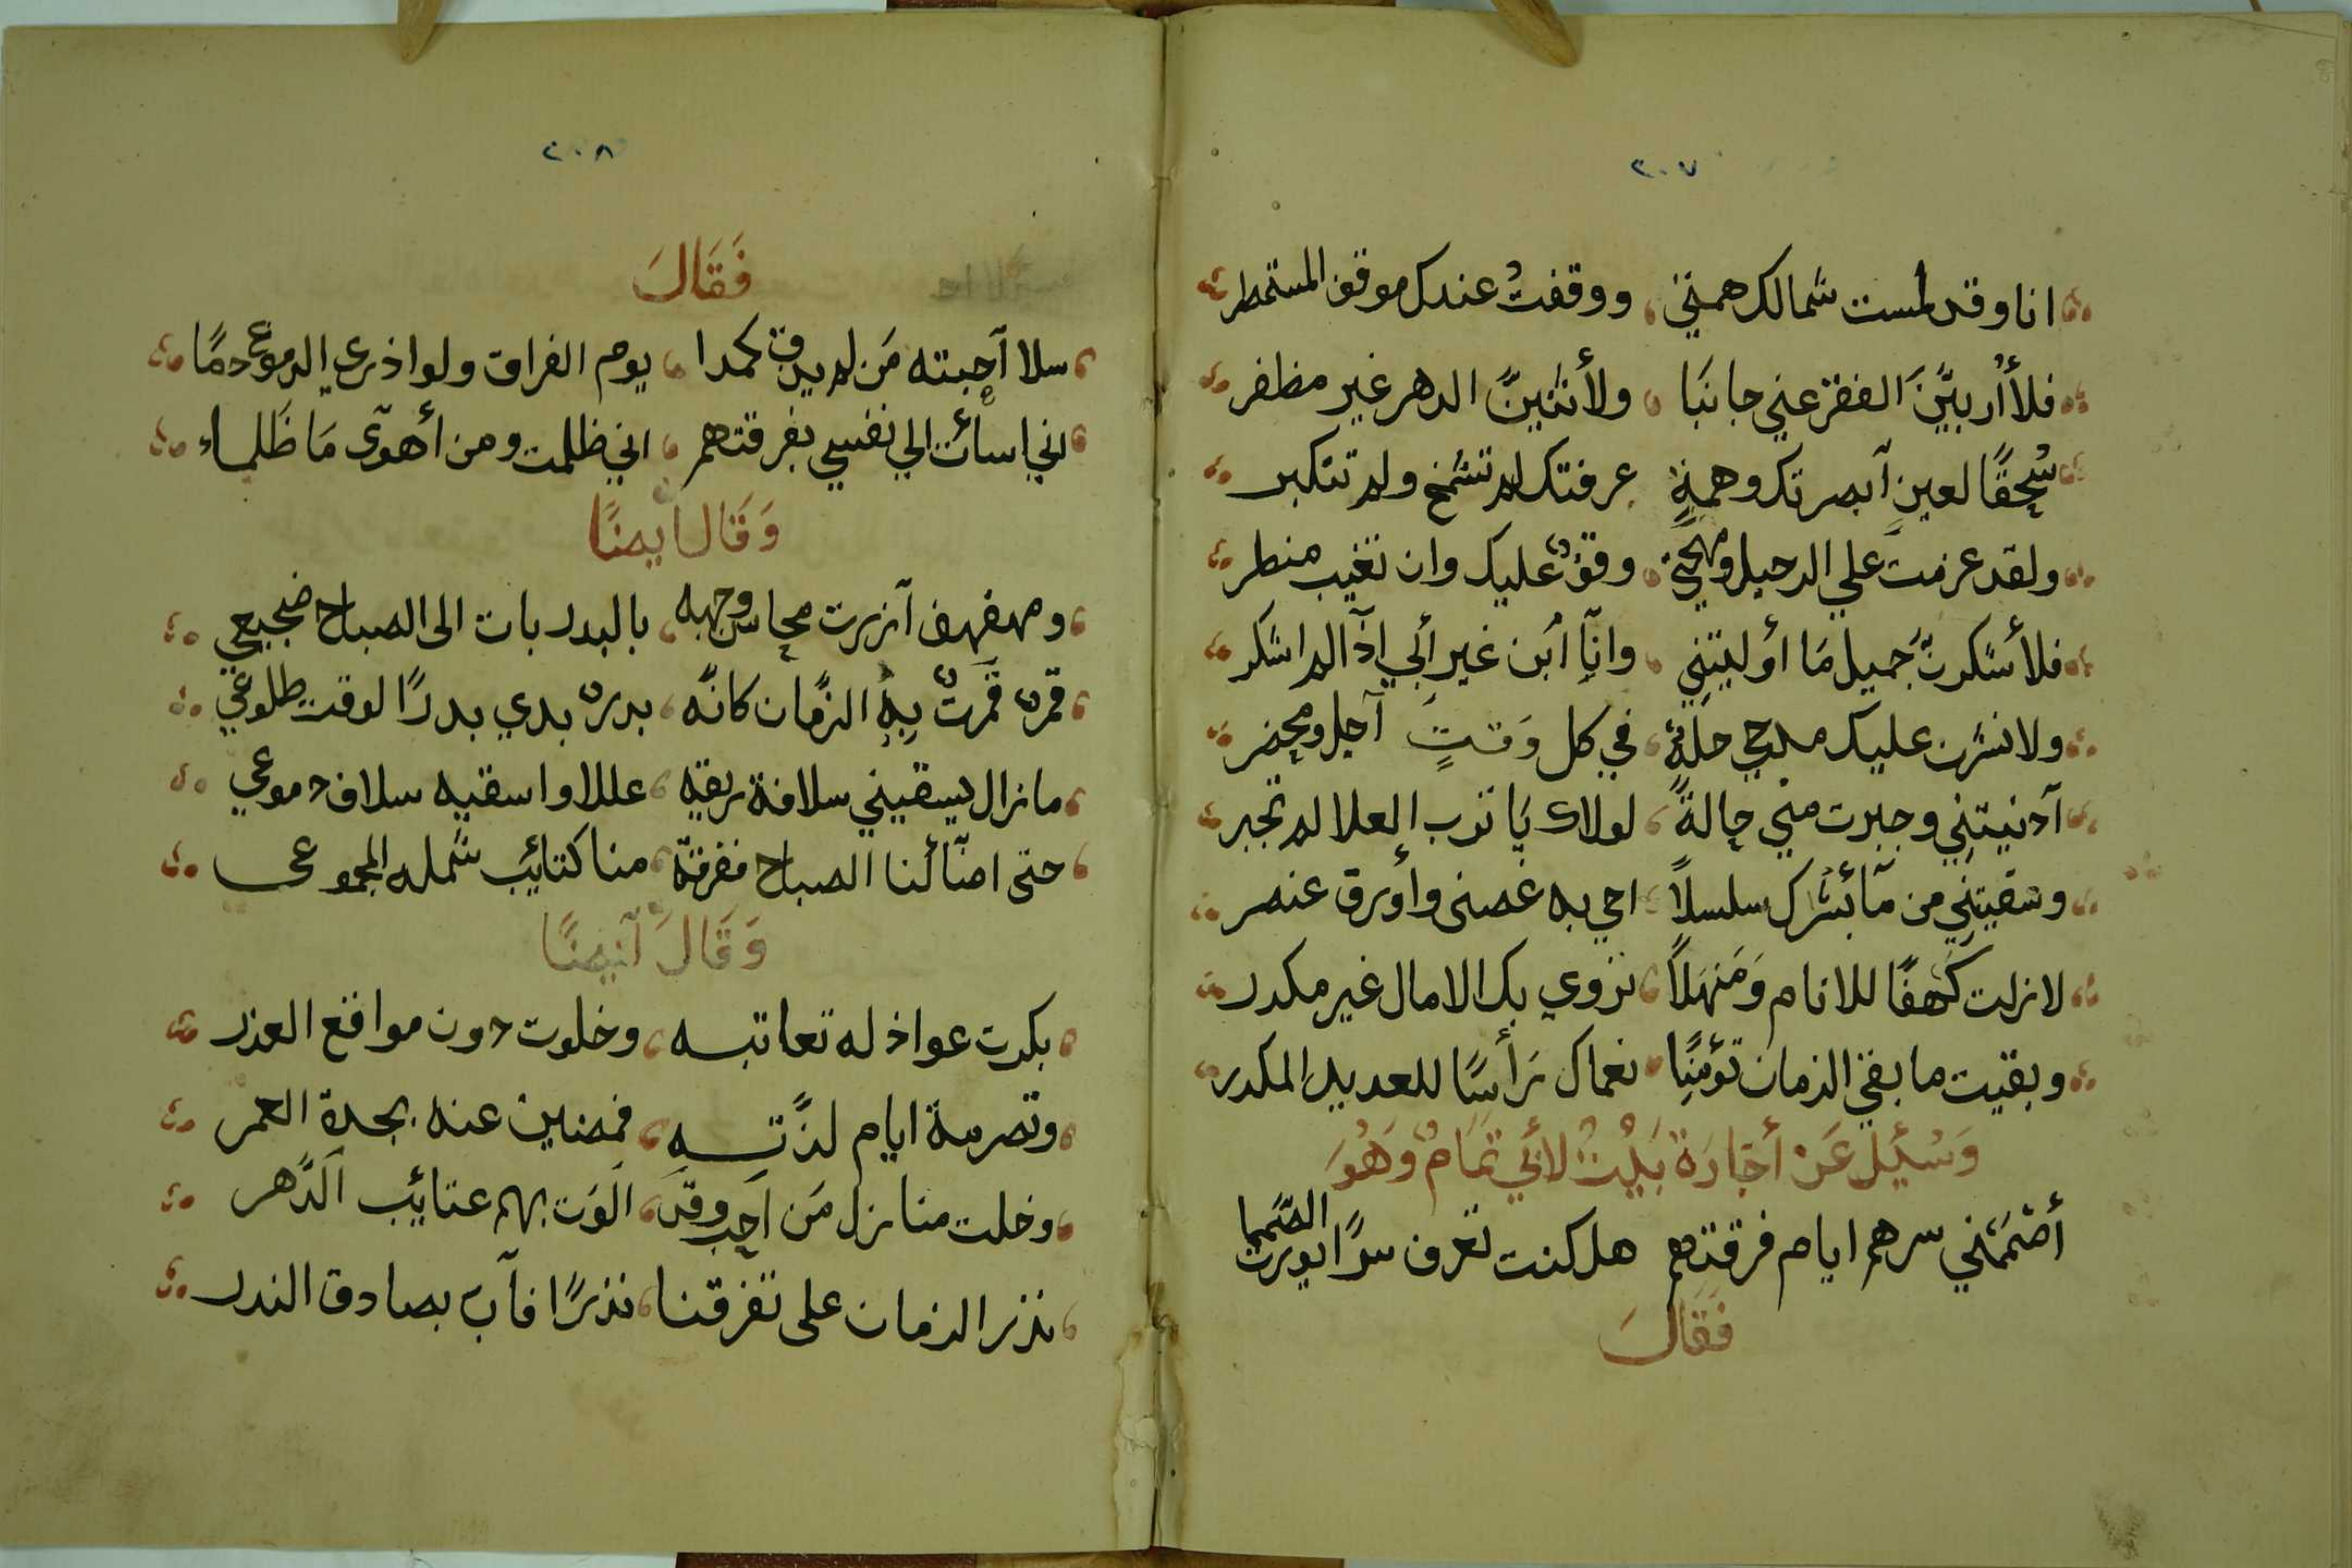 ٢٠٧
انا وقد لمست شمالك همتي ووقفتُ عندك موقف المستمطر
فلأاُربيَّنَ الفقر عني جانبَا ولأثنينَّ الدهر غير مظفر
سُحِقًا لعينٍ آبصرتك وهمةٍ عرفتك لم تشمخ ولم تتكبر
ولقد عزمتَ علي الرحيل ومهجتي وقفٌ عليك وان تغيب منطر
فلأشكرنَّ جميل مَا أوليتني وانآِ اُبن غير أبي اذآ لم اشكر
ولانشرن عليك مدحي حلةً في كل وَقتٍ آجل ومحضر
آدنيتنِي وجبرت مني حالةً لولاك يَا ترب العلا لم تجبر
وسقيتنِي من مآ بُشرك سلسلاً احي به غصنى وأورق عنصر
لازلت كَهفًا للانام وَمَنهَلاً نروي بك الامال غير مكدر
وبقيت ما بقي الزمان تؤمنِّا نعماك رَأسًا للعديل المكدر
وَسُئِيل عَن أجَارَة بَيتٌ لأبَي تمَامٌ وَهُوَ
أصَممَنِي سرهم ايام فرقتهم هل كنت تعرف سرًا يورث الصَّمما
فَقَالَ
٢٠٨
فَقَالَ
سلا آحِبته مَن لم يدق كمدا يوم الفراق ولو اذري الدموع دمًا
اني اسأت الي نفسي بفرقتهم اني ظلمت ومن أهوَى مَا ظَلماء
وَقَال ايضًا
ومهفهف آزرت محاسن وجهه بالبدر بات الى الصباح ضجيعي
قمرٌ قَمرتٌ بِهِ الزمان كانَّه بدرٌ بدي بدرًا لوقت طلوعي
مازال يسقيني سلافة ريقه عللا واسقيه سلاف دموعي
حتى اضآئنا الصباح ففرقتّ منا كتائب شمله المجموعى
وَقَالَ آيضًا
بكرت عواذله تعاتبه وخلوت دون مواقع العذر
وتصرمة ايام لذَّتِه فمضين عنه بجدة العمر
وخلت منازل مَن آحِب وقد الوَت بهم عتائب الَدَّهر
نذر الزمان على تفرقنا نذرًا فآبَ بصادق الندر